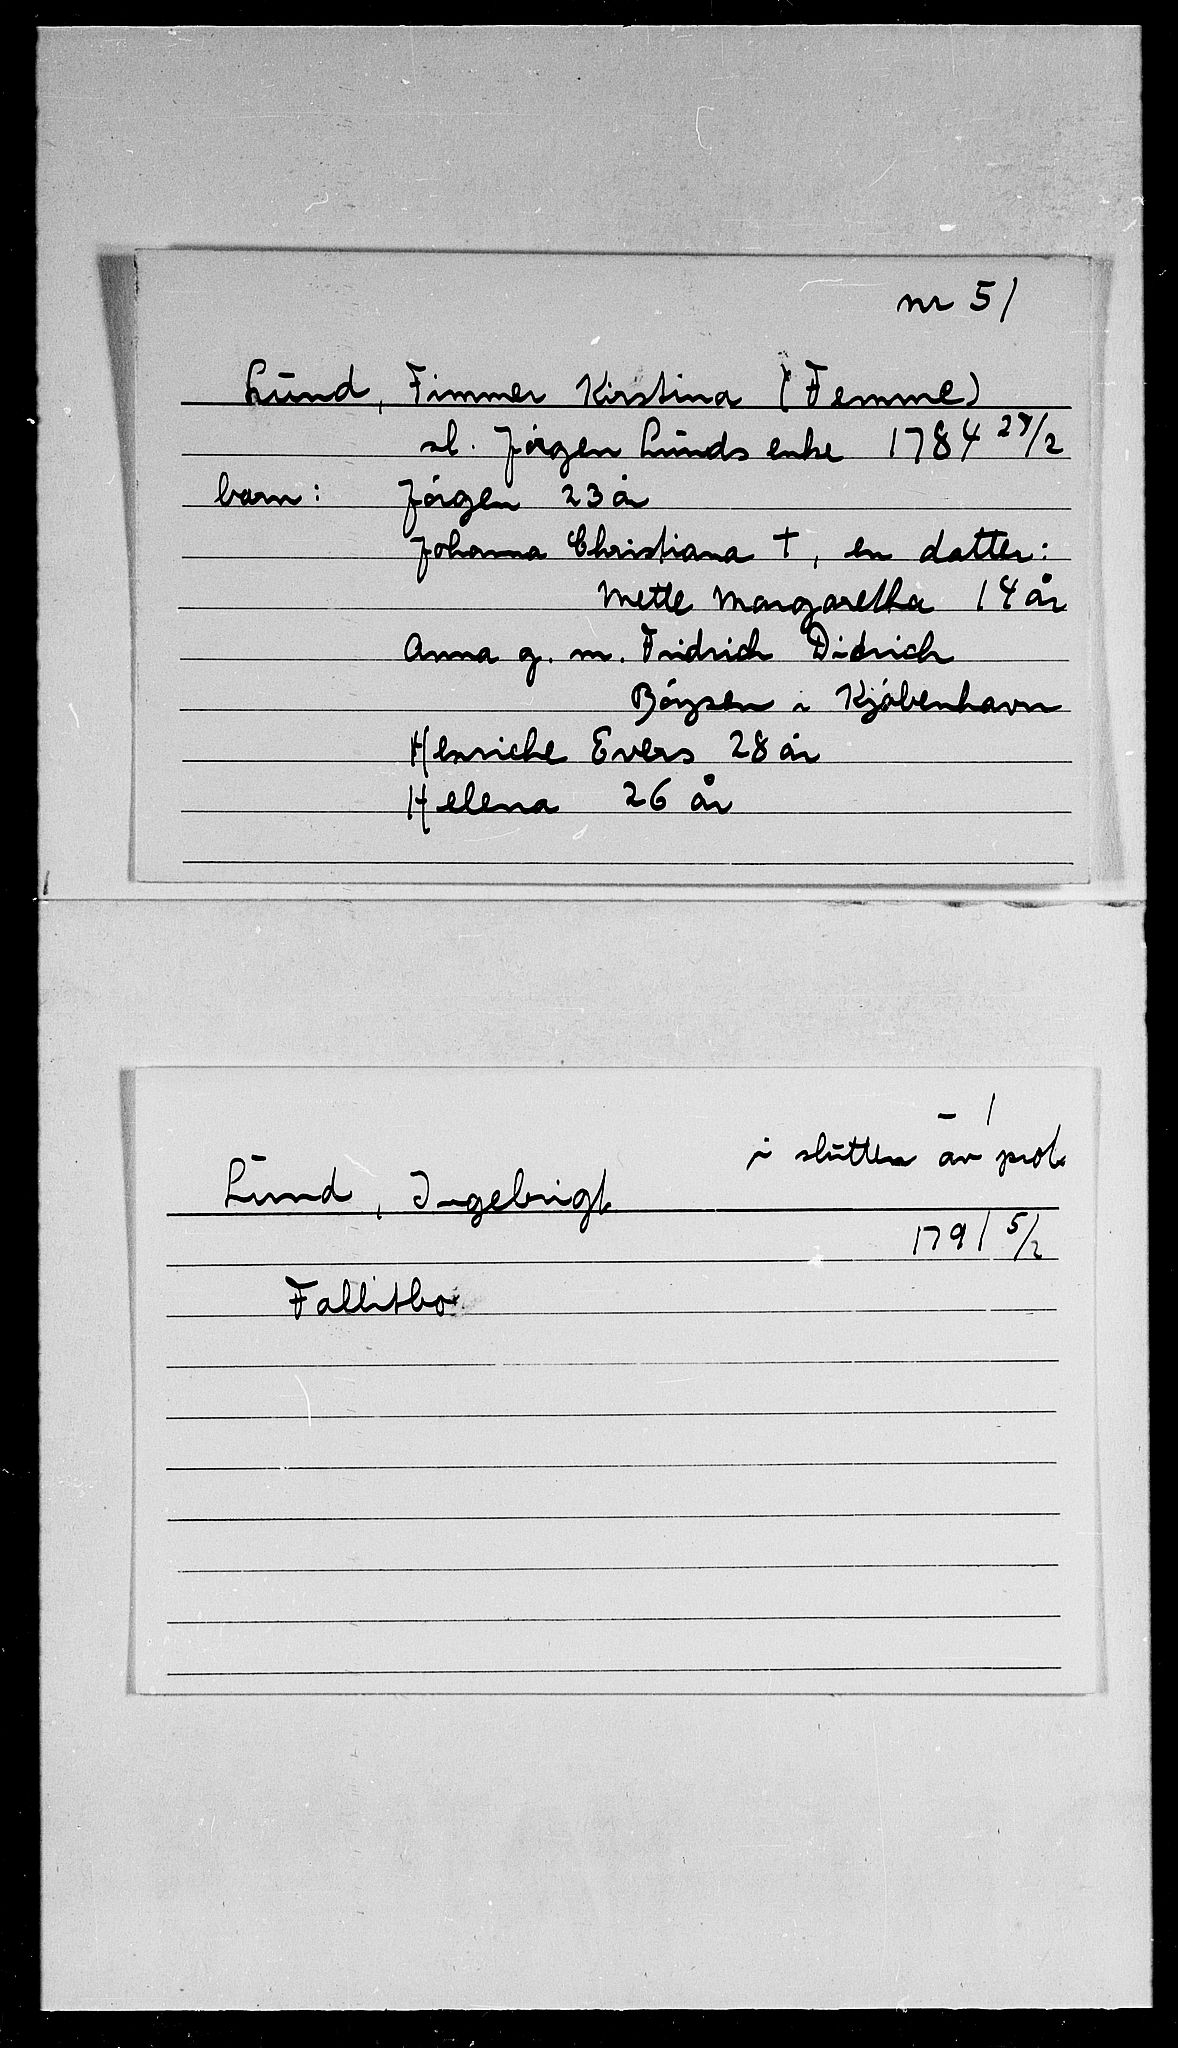 nr 51
Lund, Fimmer Kirstina (Femme)
sl. Jörgen Lunds enke 1784 27/2
barn: Jörgen 23 år
Johanna Christiana †, en datter:
Mette Margaretha 14 år
Anna g. m. Fridrich Didrich
Böysen i Kjöbenhavn
Henriche Evers 28 år
Helena 26 år
- 1
i slutten av prot.
Lund, Ingebrigt
1791 5/2
Fallitbo